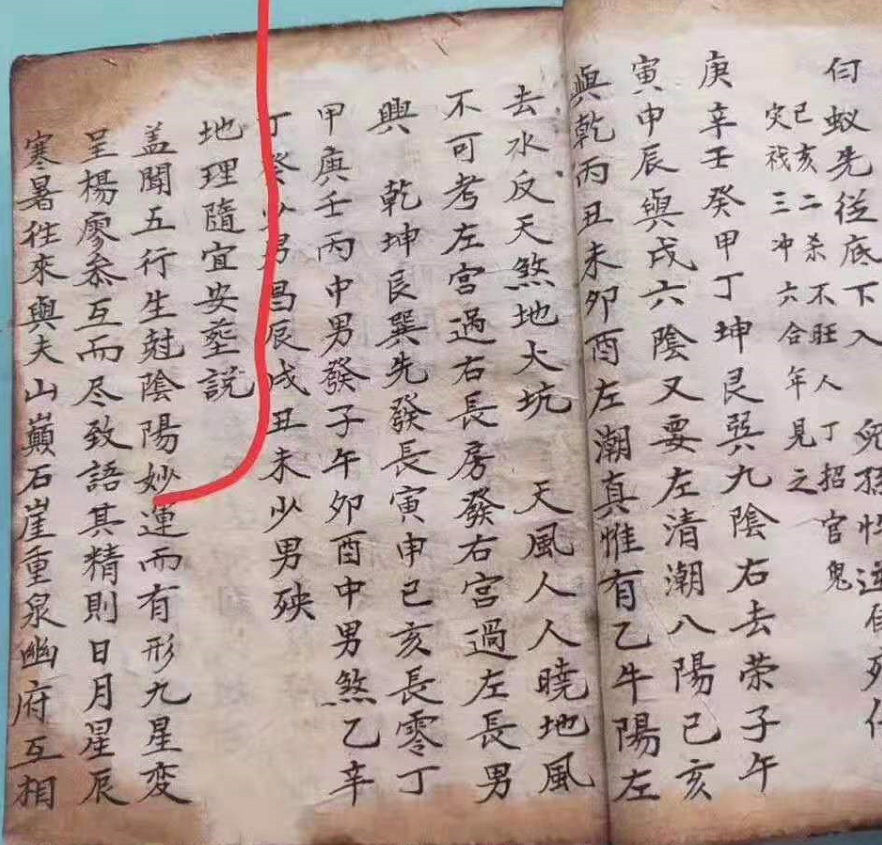 蚁先従底下入
已亥二杀不旺人丁招官鬼
灾戝三冲六合年見之
庚辛壬癸甲丁坤艮巽九陰右去荣子午
寅申辰與戌六陰又要左清潮八陽己亥
與乾丙丑未卯酉左潮真惟有乙牛陽左
去水反天煞地大坑 天風人人曉地風
不可考左宮過右長房發右宮過左長男
興 乾坤艮巽先發長寅申巳亥長零丁
甲庚壬丙中男發子午卯酉中男煞乙辛
丁癸少男昌辰戌丑未少男殃
地理隨宜安塟説
盖聞五行生尅陰陽妙運而有形九星変
呈楊廖叅互而尽致語其精則日月星辰
寒暑往來與夫山巔石崖重泉幽府互相